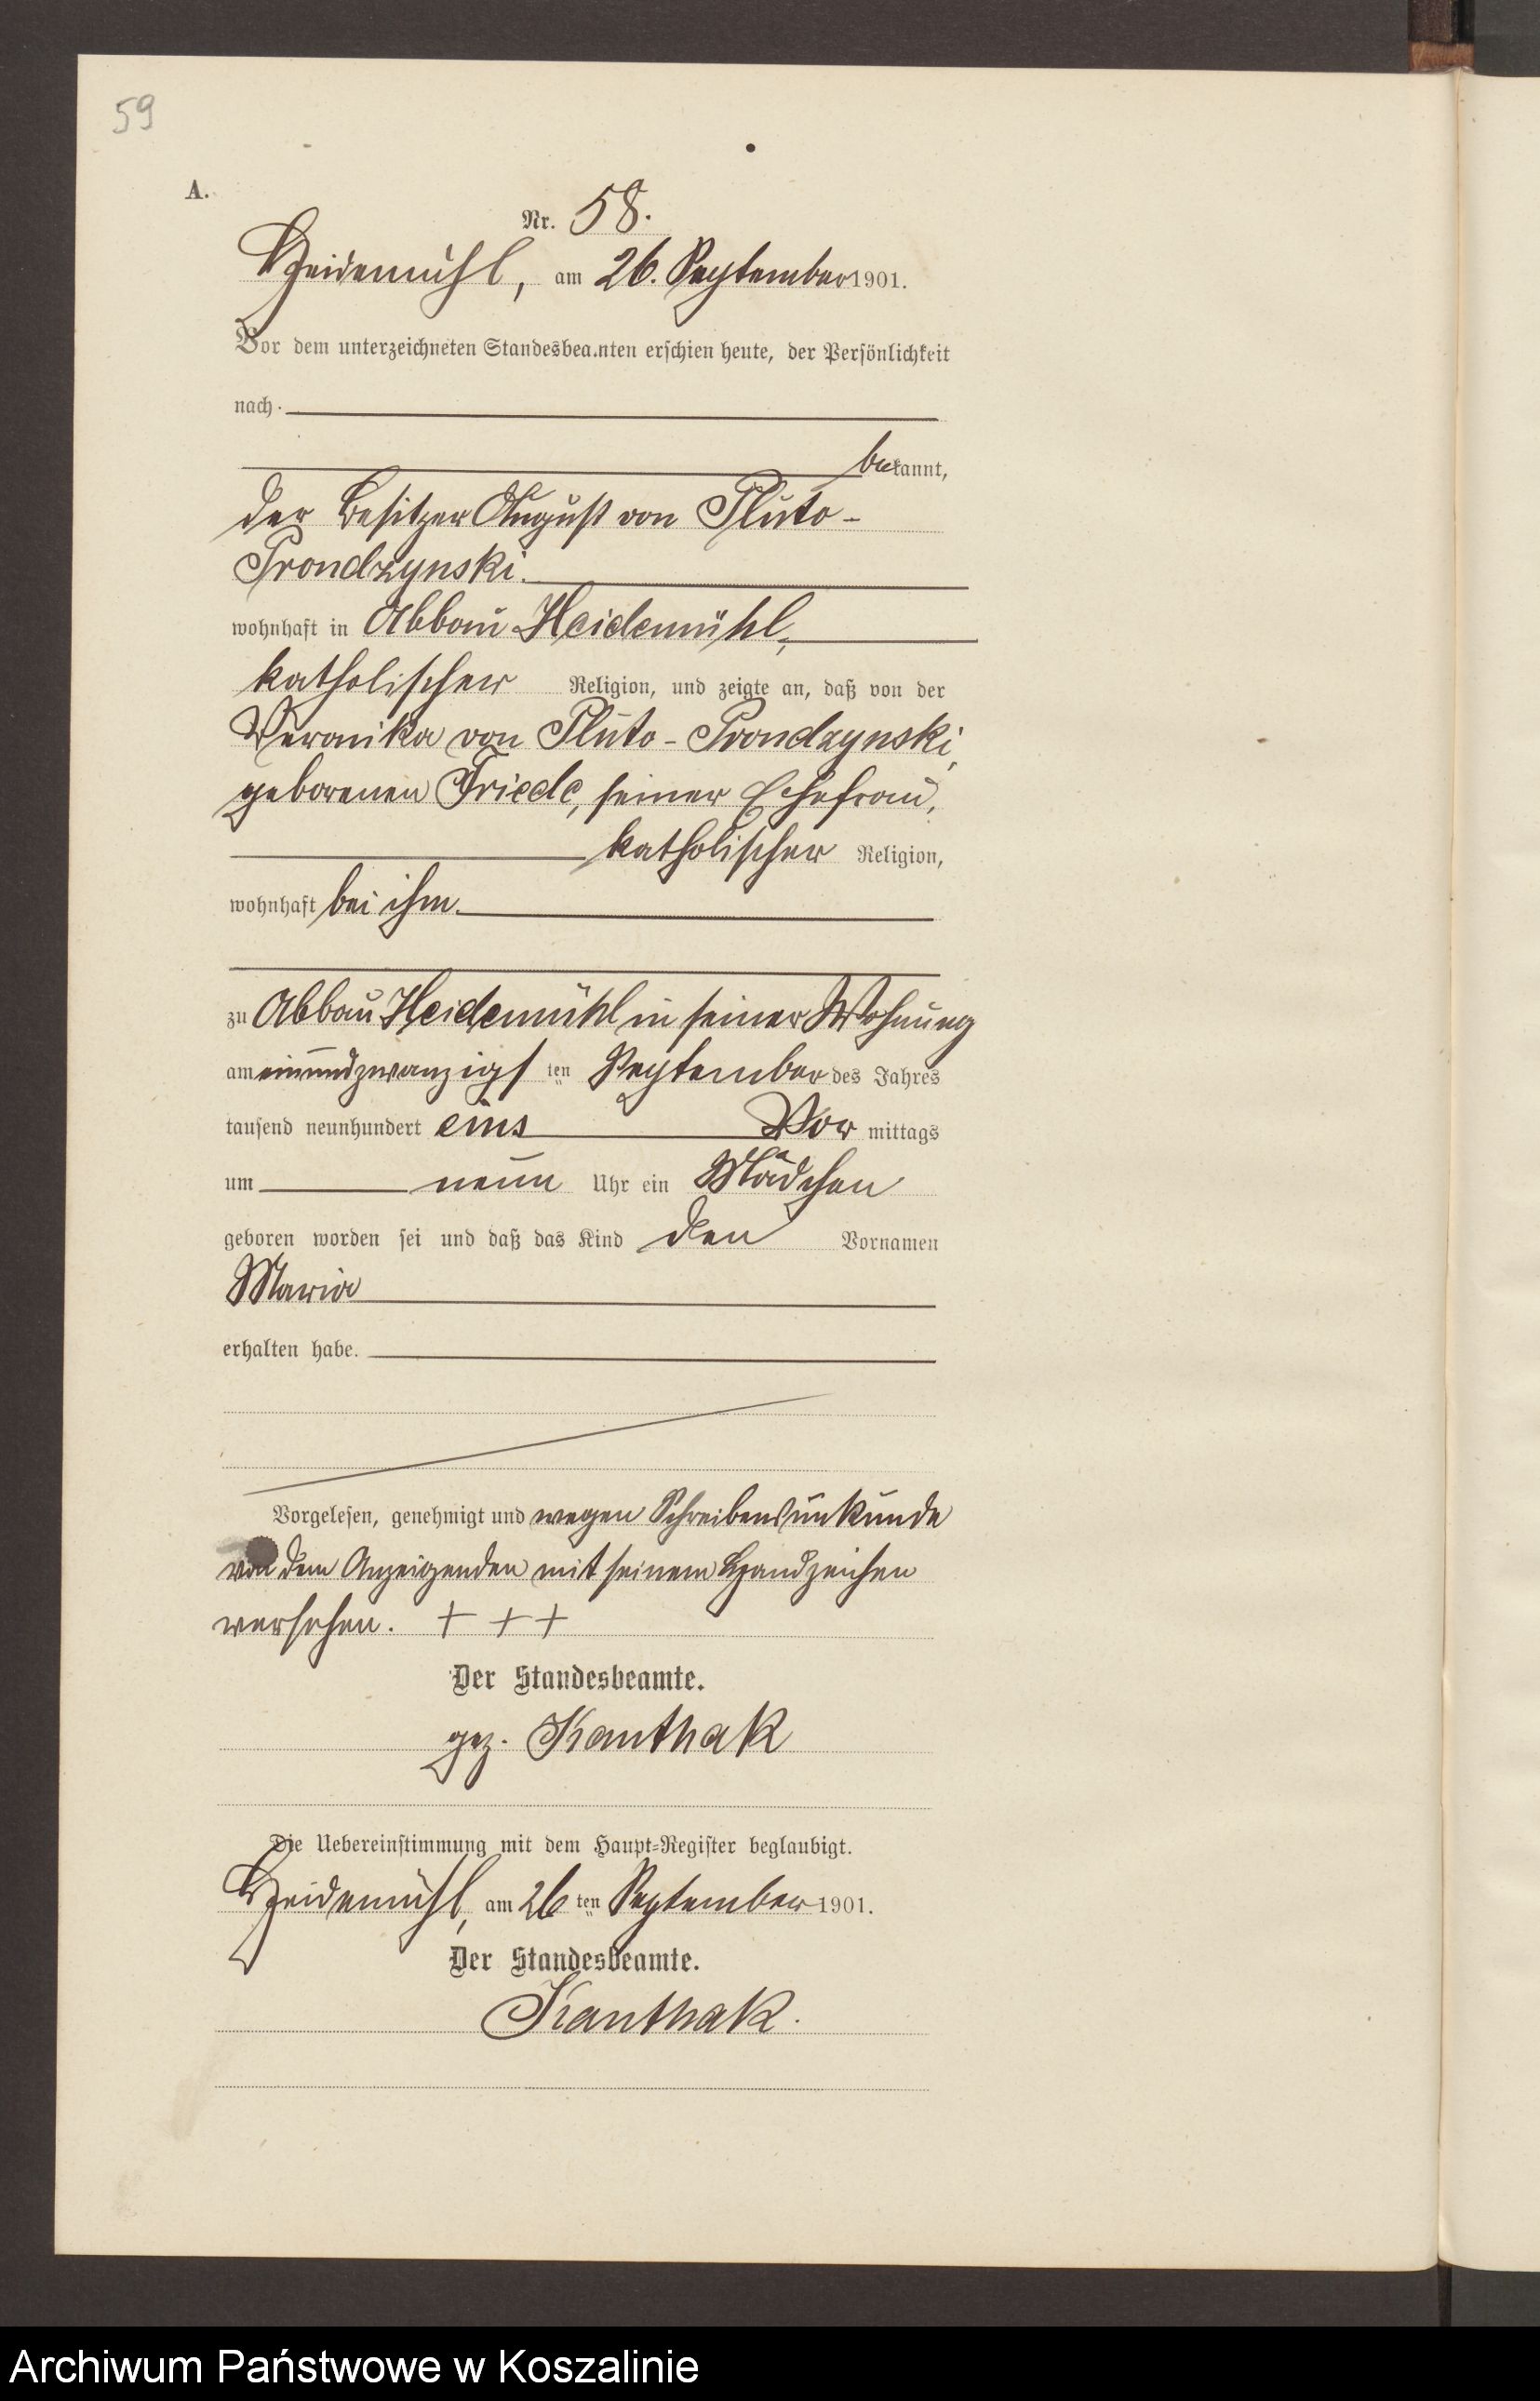 59
A.
Nr. 58.
Heidemühl, am 26. September 1901.
Vor dem unterzeichneten Standesbeamten erschien heute, der Persönlichkeit
nach
bekannt,
der Besitzer August von Pluto-
Prondzynski.
wohnhaft in Abbau Heidemühl,
katholischer Religion, und zeigte an, daß von der
Veronika von Pluto-Prondzynski,
geborenen Friede, seiner Ehefrau,
katholischer Religion,
wohnhaft bei ihm.
zu Abbau Heidemühl in seiner Wohnung
am einundzwanzigsten September des Jahres
tausend neunhundert eins Vor mittags
um neun Uhr ein Mädchen
geboren worden sei und daß das Kind den Vornamen
Maria
erhalten habe.
Vorgelesen, genehmigt und wegen Schreibensunkunde
von dem Anzeigenden mit seinem Handzeichen
versehen. + + +
Der Standesbeamte.
gez. Kanthak
Die Uebereinstimmung mit dem Haupt-Register beglaubigt.
Heidemühl, am 26ten September 1901.
Der Standesbeamte.
Kanthak.
Archiwum Państwowe w Koszalinie